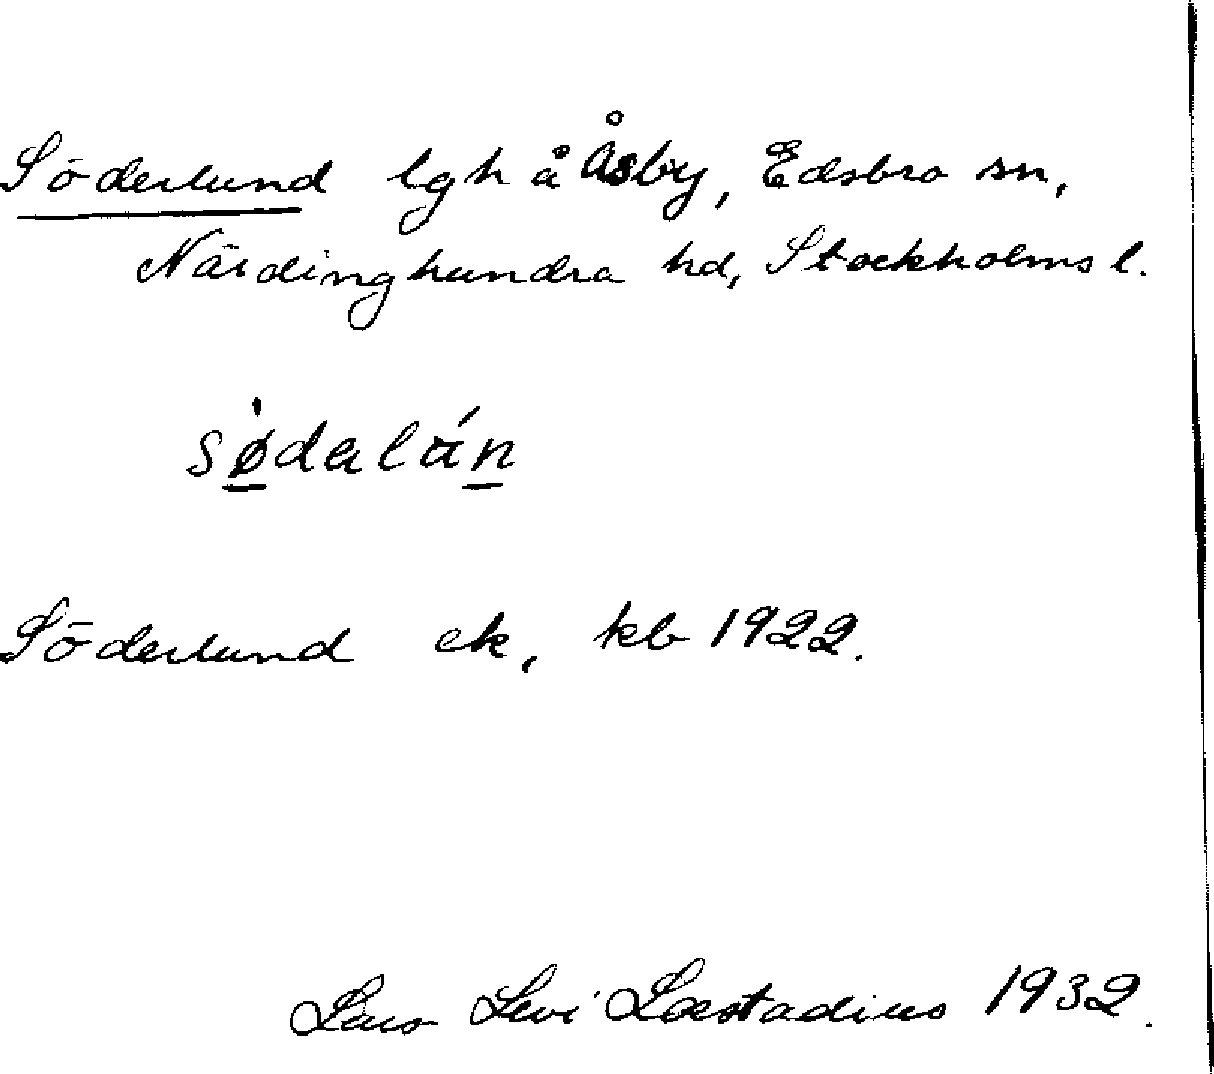 Söderlund lgh å Åsby, Edsbro sn,
Närdinghundra hd, Stockholms l.
sø̱̀daláṉ
Söderlund ek, kb 1922.
Lars Levi Læstadius 1932.